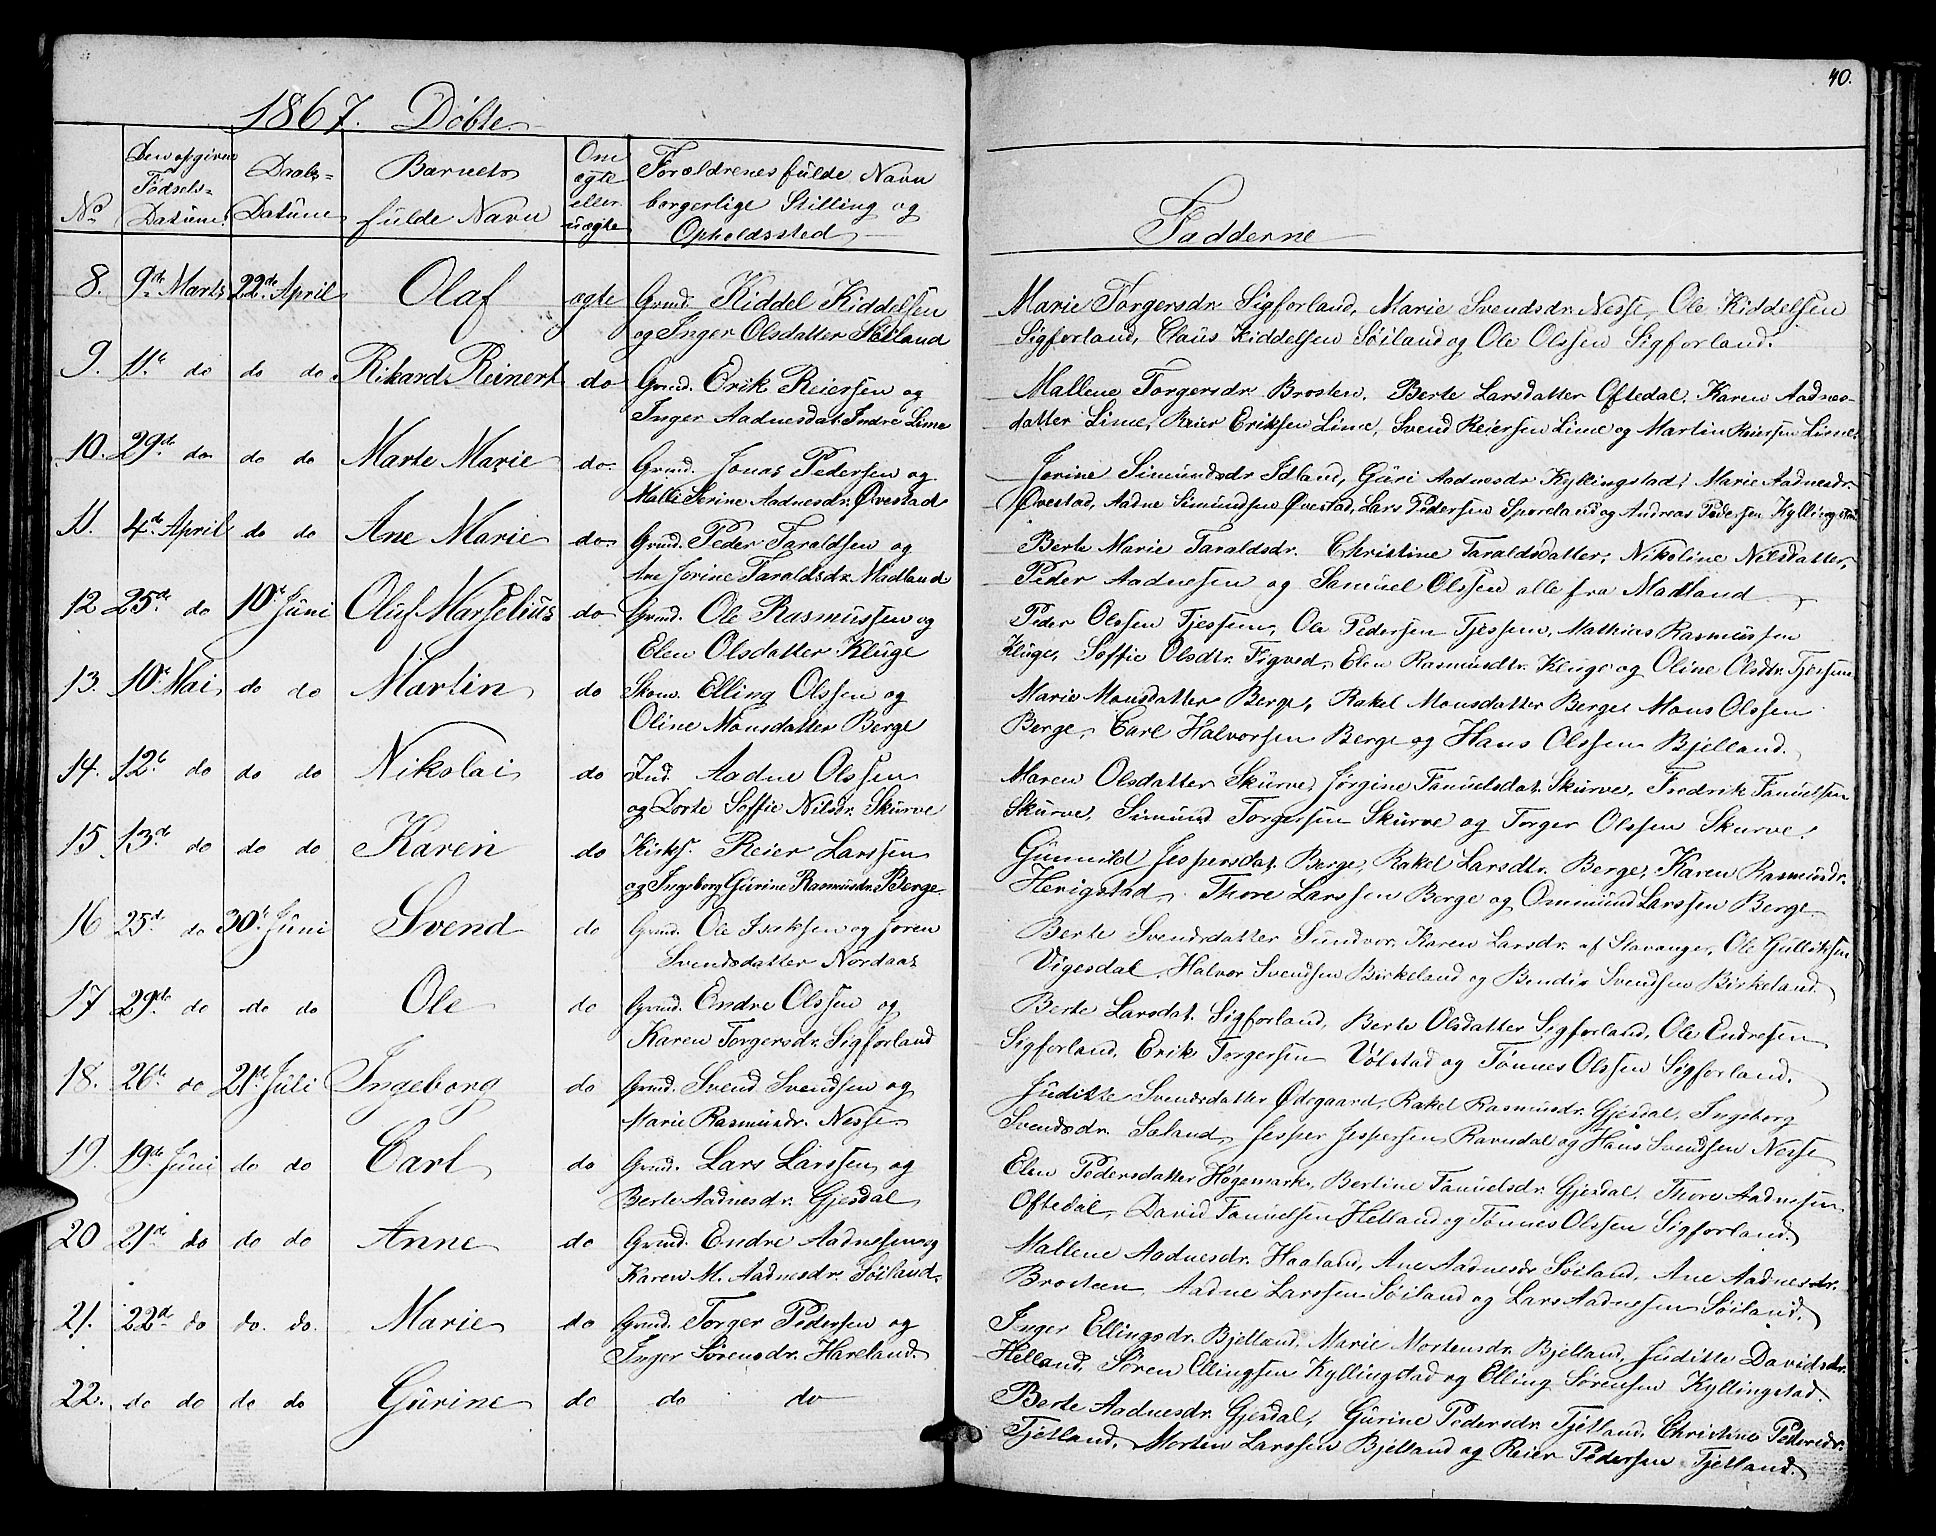 40.
1867. Döbte
No
Den opgivne Födsels= Datum
Daabs= Datum
Barnets fulde Navn
Om ægte eller uægte
Forældrenes fulde Navn borgerlige Stilling og Opholdssted
Fadderne
8. 9de Marts 22de April Olaf ægte Grmd. Kiddel Kiddelsen
og Inger Olsdatter Söiland
Marie Torgersdr. Sigforland, Marie Svendsdr. Nesse, Ole Kiddelsen
Sigforland, Claus Kiddelsen Söiland og Ole Olssen Sigforland.
9. 11te do do do Rikard Reinert do Grmd. Erik Reiersen og
Inger Aadnesdat. Indre Lime
Mallene Torgersdr. Brosten, Berte Larsdatter Oftedal, Karen Aadnes-
datter Lime, Reier Eriksen Lime, Svend Reiersen Lime og Martin Reiersen Lime
10. 29de do do do Marte Marie do Grmd. Jonas Pedersen og
Malle Serine Aadnesdr. Övestad
Jorine Simundsdr. Idland, Guri Aadnesdr Kyllingstad, Marie Aadnesdr.
Övestad, Aadne Simundsen Övestad, Lars Pedersen Sporeland og Andreas Pedersen Kyllingstad
11. 4de April do do Ane Marie do Grmd. Peder Taraldsen og
Ane Jorine Taraldsdr. Madland
Berte Marie Taraldsdr. Christine Taraldsdatter, Nikoline Nilsdatter,
Peder Aadnesen og Samuel Olssen alle fra Madland
12 25de do 10de Juni Oluf Martelius do Grmd. Ole Rasmussen og
Elen Olsdatter Kluge
Peder Olssen Tjessem, Ole Pedersen Tjessem, Mathias Rasmussen
Kluge, Soffie Olsdtr. Figved, Elen Rasmusdtr. Kluge og Oline Olsdtr. Tjessem
13. 10de Mai do do Martin do Skom. Elling Olssen og
Oline Monsdatter Berge
Marie Monsdatter Berge, Rakel Monsdatter Berge Mons Olssen
Berge, Carl Halvorsen Berge og Hans Olssen Bjelland.
14. 12te do do do Nikolai do Ind. Aadne Olssen
og Dorte Soffie Nilsdr. Skurve
Maren Olsdatter Skurve, Jörgine Fanuelsdat. Skurve, Fredrik Fanuelsen
Skurve, Simund Torgersen Skurve og Torger Olssen Skurve.
15 13de do do do Karen do Kirks. Reier Larssen
og Ingeborg Gurine Rasmusdr. Berge
Gunnild Jespersdat. Berge, Rakel Larsdtr. Berge, Karen Rasmusdr.
Herigstad, Thore Larssen Berge og Ommund Larssen Berge
16 25de do 30te Juni Svend do Grmd. Ole Isaksen og Joren
Svendsdatter Nordaas
Berte Svendsdatter Sundvor, Karen Larsdr. af Stavanger, Ole Gulliksen
Vigesdal, Halvor Svendsen Birkeland og Bendix Svendsen Birkeland
17 29de do do do Ole do Grmd. Endre Olssen og
Karen Torgersdr. Sigforland
Berte Larsdat. Sigforland, Berte Olsdatter Sigforland, Ole Endresen
Sigforland, Erik Torgersen Vølstad og Tønnes Olssen Sigforland.
18. 26de do 21de Juli Ingeborg do Grmd. Svend Svendsen og
Marie Rasmusdr. Nesse
Juditte Svendsdatter Ødegaard, Rakel Rasmusdr. Gjesdal, Ingeborg
Svendsdr. Søland, Jesper Jespersen Ravndal og Hans Svendsen Nesse
19. 19de Juni do do Carl do Grmd. Lars Larssen og
Berte Aadnesdr. Gjesdal
Elen Pedersdatter Høgemark, Bertine Fanuelsdr. Gjesdal, Thore Aadnesen
Oftedal, David Fanuelsen Helland og Tønnes Olssen Sigforland.
20 21de do do do Anne do Grmd. Endre Aadnesen og
Karen M. Aadnesdr. Söiland
Mallene Aadnesdr. Haaland, Ane Aadnesdr Söiland, Ane Aadnesdr.
Brosteen, Aadne Larssen Söiland og Lars Aadnesen Söiland.
21. 22de do do. do. Marie do Grmd. Torger Pedersen og
Inger Sørensdr. Haveland
Inger Ellingsdr. Bjelland, Marie Mortensdr. Bjelland, Juditte Davidsdr.
Helland, Sören Ellingsen Kyllingstad og Elling Sörensen Kyllingstad.
22. do do do do Gurine do do do
Berte Aadnesdr. Gjesdal, Gurine Pedersdr. Tjetland, Christine Pedersdr.
Tjetland, Morten Larssen Bjelland og Reier Pedersen Tjetland.